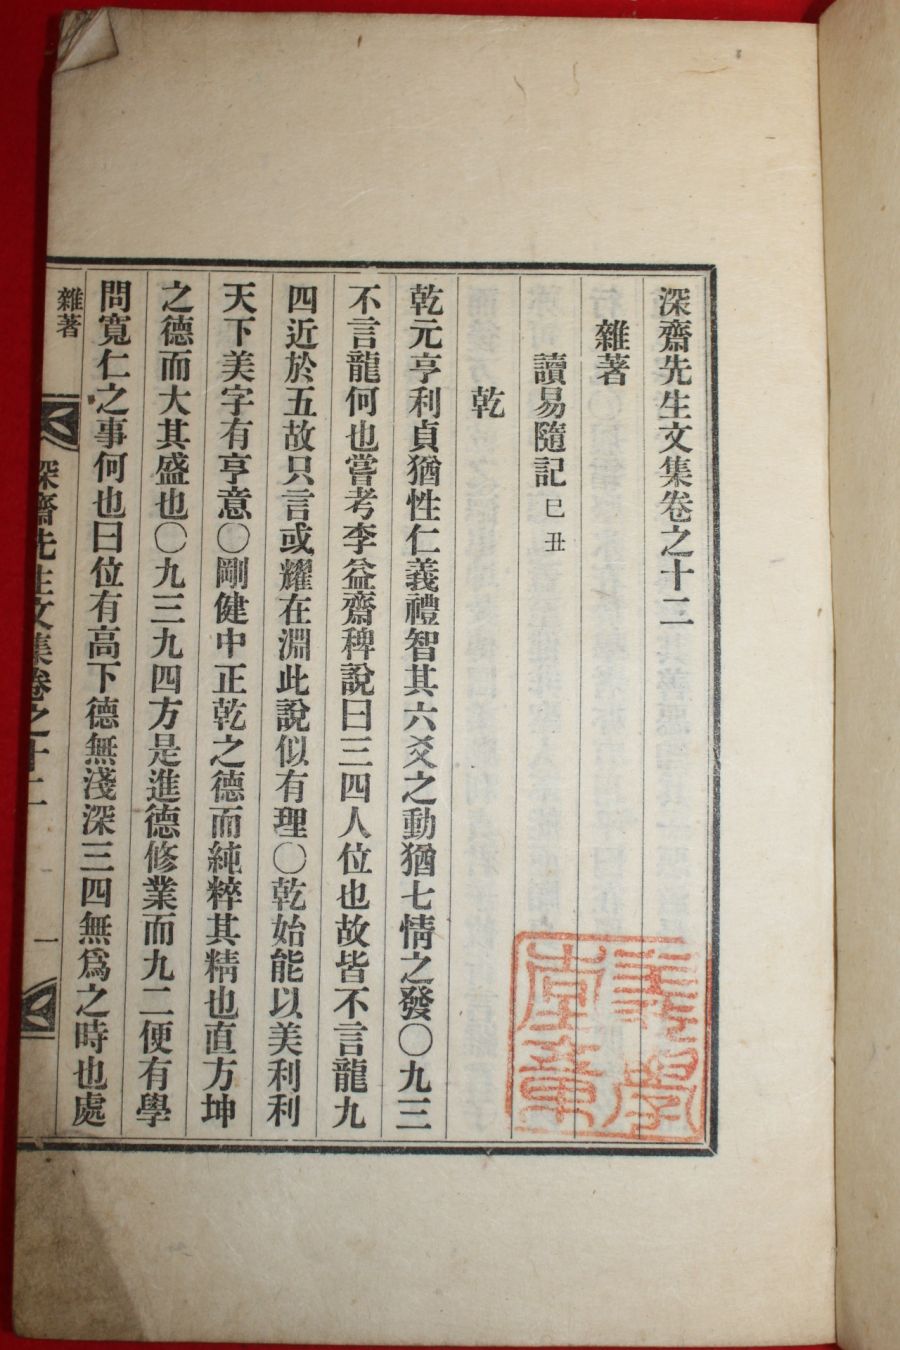 深齋先生文集卷之十二
雜著
讀易隨記 己丑
乾
乾元亨利貞猶性仁義禮智其六爻之動猶七情之發〇九三
不言龍何也嘗考李益齋稗說曰三四人位也故皆不言龍九
四近於五故只言或耀在淵此說似有理〇乾始能以美利利
天下美字有亨意〇剛健中正乾之德而純粹其精也直方坤
之德而大其盛也〇九三九四方是進德修業而九二便有學
問寬仁之事何也曰位有高下德無淺深三四無爲之時也處
雜著
深齋先生文集卷之十二
一